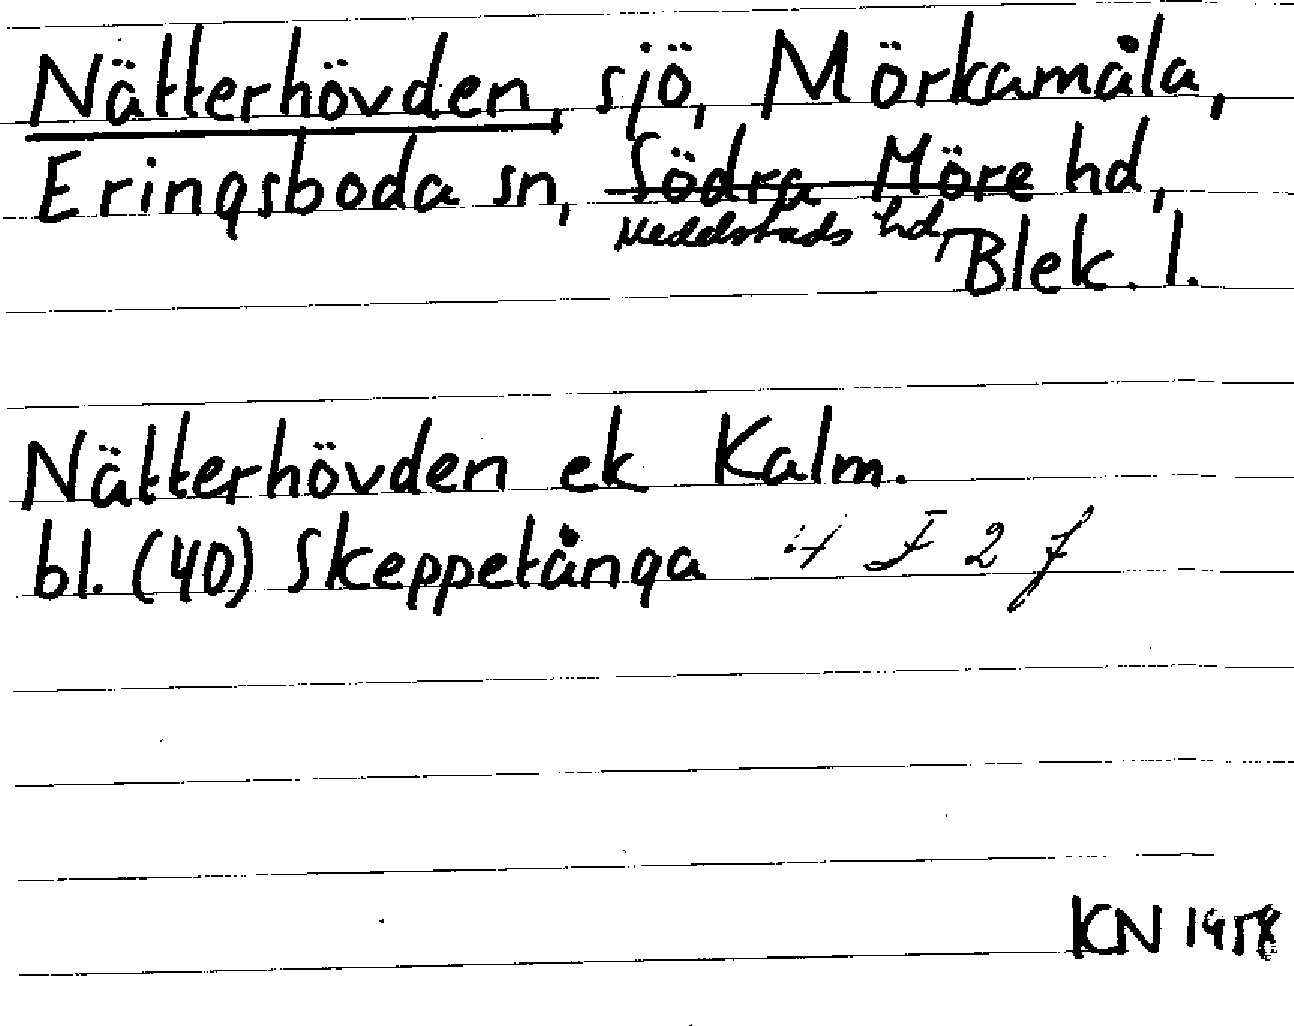 Nätterhövden, sjö, Mörkamåla,
Eringsboda sn, Södra Möre hd,
Medelstads hd,
Blek. l.
Nätterhövden ek Kalm.
bl. (40) Skeppetånga 4 F 2 f
KN 1958